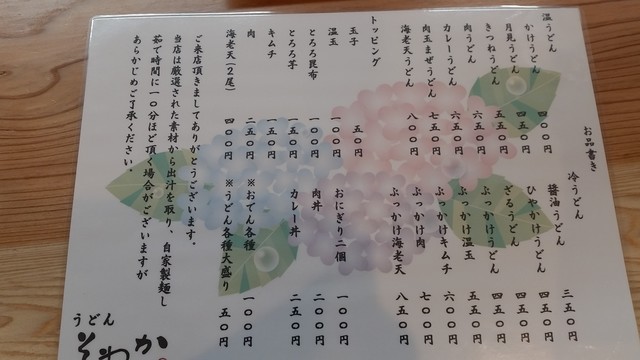 お品書き
温うどん
かけうどん 四〇〇円
月見うどん 四五〇円
きつねうどん 五五〇円
肉うどん 五五〇円
カレーうどん 六五〇円
肉玉まぜうどん 七五〇円
海老天うどん 八〇〇円
トッピング
玉子 五〇円
温玉 一〇〇円
とろろ昆布 一〇〇円
とろろ芋 一五〇円
キムチ 一五〇円
肉 二五〇円
海老天(2尾) 四〇〇円
冷うどん
醤油うどん 三五〇円
ひやかけうどん 四五〇円
ざるうどん 四五〇円
ぶっかけうどん 四五〇円
ぶっかけ温玉 五五〇円
ぶっかけキムチ 六〇〇円
ぶっかけ肉 七〇〇円
ぶっかけ海老天 八五〇円
おにぎり二個 一〇〇円
肉丼 二〇〇円
カレー丼 二五〇円
※おでん各種 一〇〇円
※うどん各種大盛り 五〇円
ご来店頂きましてありがとうございます。
当店は厳選された素材から出汁を取り、自家製麺し
茹で時間に一〇分ほど頂く場合がございますが
あらかじめご了承ください。
うどん
そわか